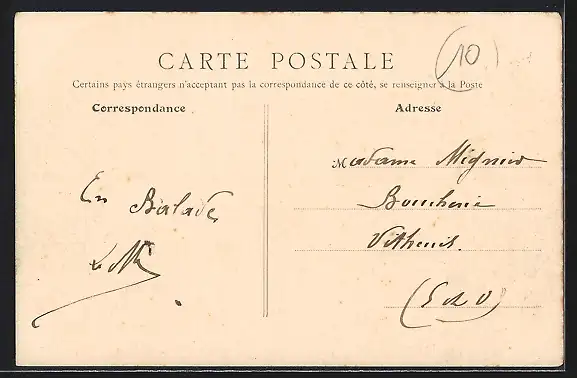 CARTE POSTALE
10
Certains pays étrangers n'acceptant pas la correspondance de ce côté, se renseigner à la Poste
Correspondance
Adresse
En Balade
Madame Mignier
Boucherie
Vétheuil
(S & O)